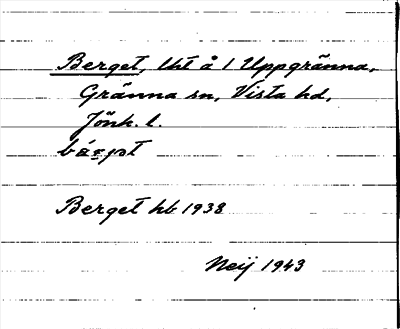 Berget, lht å 1 Uppgränna,
Gränna sn, Vista hd,
Jönk. l.
Berget hb 1938
Neij 1943